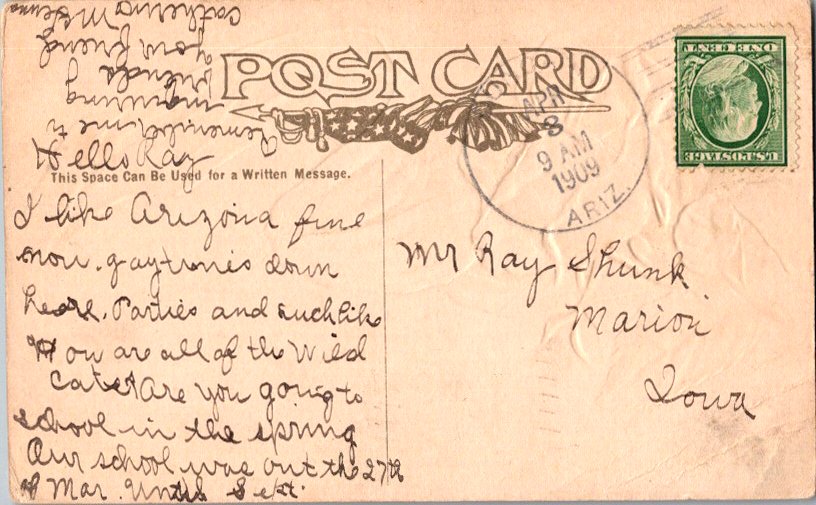 POST CARD
APR
8
9 AM
1909
ARIZ.
U.S.POSTAGE
ONE CENT
This Space Can Be Used for a Written Message.
Hello Ray
I like Arizona fine
now. gay times down
here. Parties and such like
How are all of the Wild
Cats Are you going to
school in the spring
Our school was out the 27th
of Mar. Until Sept.
Remember me to
inquiring
friends
your friend
Catherine
Mr Ray Shunk
Marion
Iowa